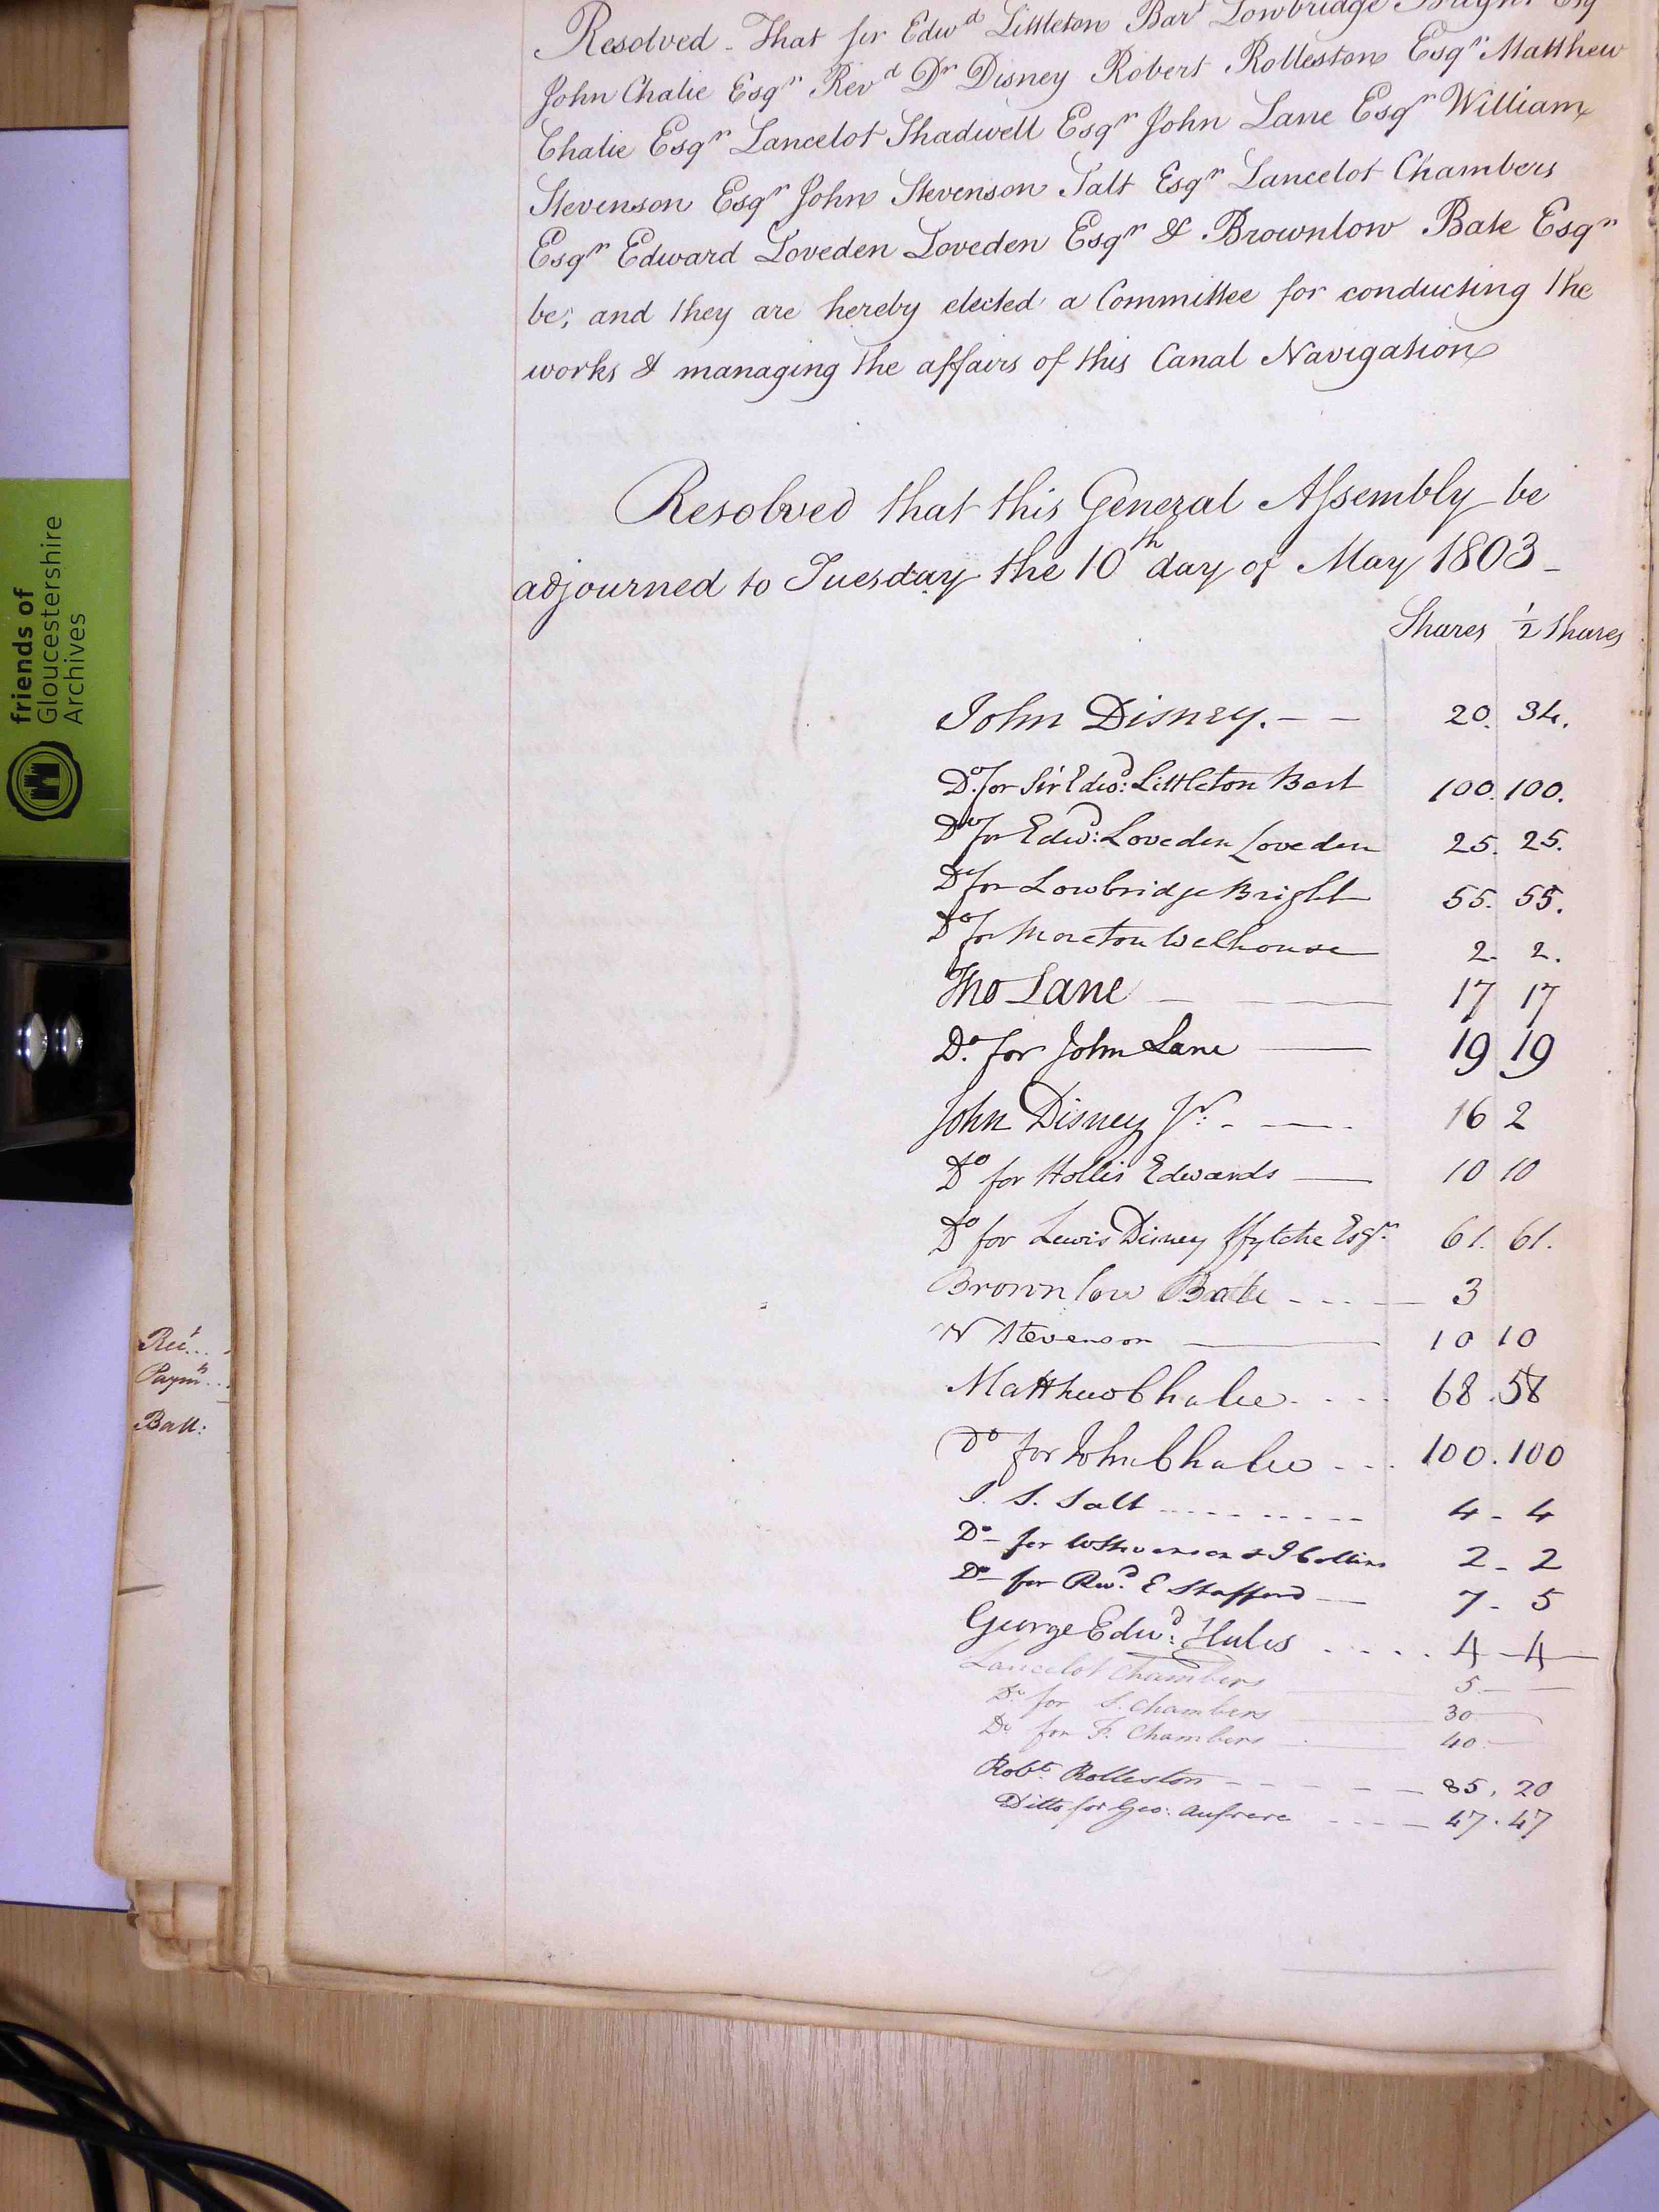 Resolved - That Sir Edwd Littleton Bart Lowbridge Bright Esq
John Chalie Esqr Revd Dr Disney Robert Rolleston Esqr Matthew
Chalie Esqr Lancelot Shadwell Esqr John Lane Esqr William
Stevenson Esqr John Stevenson Salt Esqr Lancelot Chambers
Esqr Edward Loveden Loveden Esqr & Brownlow Bate Esqr
be, and they are hereby elected a Committee for conducting the
works & managing the affairs of this Canal Navigation
Resolved that this General Assembly be
adjourned to Tuesday the 10th day of May 1803 -
Shares ½ Shares
John Disney. - - 20. 34.
Do. for Sir Edwd: Littleton Bart 100. 100.
Do for Edwd: Loveden Loveden 25. 25.
Do for Lowbridge Bright 55. 55.
Do for Moreton Walhouse 2. 2.
Tho Lane 17 17
Do. for John Lane 19 19
John Disney Jr. - 16 2
Do for Hollis Edwards 10 10
Do for Lewis Disney Ffytche Esqr. 61. 61.
Brownlow Bate - - - 3
W Stevenson 10 10
Matthew Chalie - - - - 68. 58
Do for John Chalie - - - 100. 100
J. S. Salt - - - - 4 - 4
Do for W Stevenson & J Collins 2 - 2
Do for Revd. E Stafford 7 - 5
George Edwd: Hules . . . . 4 - 4
Lancelot Chambers 5 - -
Do for S. Chambers 30
Do for F. Chambers 40
Robt. Rolleston - - - - 85. 20
Ditto for Geo: Aufrere - - - - 47. 47
Rect. . .
Paymts. . .
Ball:
friends of
Gloucestershire
Archives